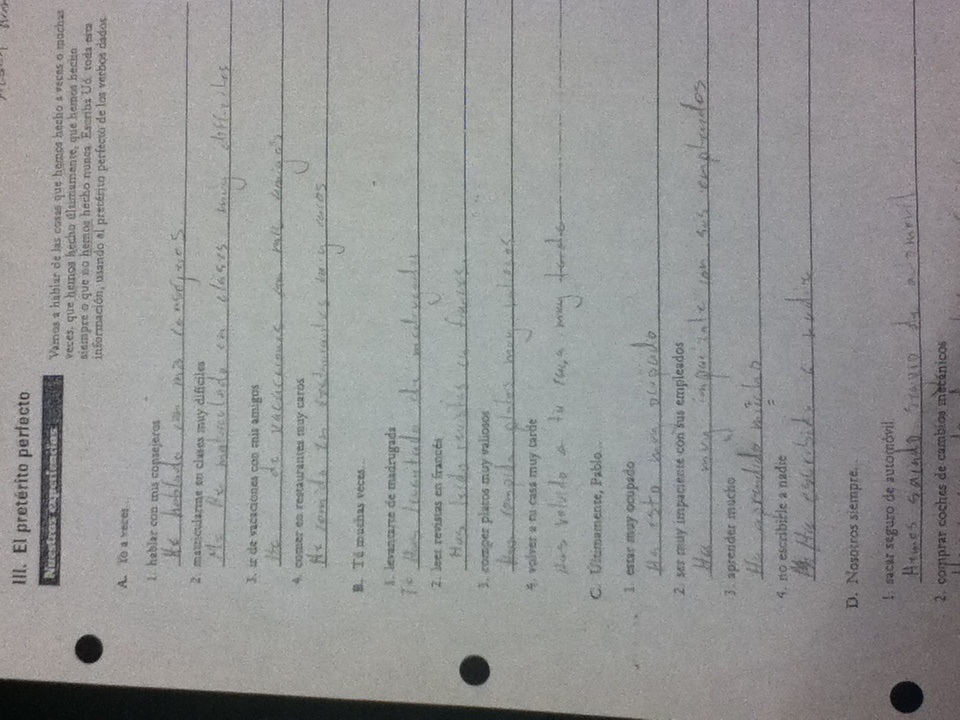 III. El pretérito perfecto
Nuestras experiencias
Vamos a hablar de las cosas que hemos hecho a veces o muchas
veces, que hemos hecho últimamente, que hemos hecho
siempre o que no hemos hecho nunca. Escriba Ud. toda esta
información, usando el pretérito perfecto de los verbos dados.
A. Yo a veces...
1. hablar con mis consejeros
He hablado con mis consejeros.
2. matricularme en clases muy difíciles
Me He matriculado en clases muy difficiles
3. ir de vacaciones con mis amigos
He de vacaciones con mis amigos
4. comer en restaurantes muy caros
He comido en restaurantes muy caros
B. Tú muchas veces...
1. levantarte de madrugada
Te Has levantado de madrugada
2. leer revistas en francés
Has leido revistas en frances.
3. romper platos muy valiosos
Has rompido platos muy valiosos
4. volver a tu casa muy tarde
Has volvido a tu casa muy tarde
C. Últimamente, Pablo...
1. estar muy ocupado
Ha esto muy ocupado
2. ser muy impaciente con sus empleados
Ha muy con sus empleados
3. aprender mucho
Ha aprendido mucho
4. no escribirle a nadie
Ha escribido a nadie
D. Nosotros siempre...
1. sacar seguro de automóvil
Hemos de automovil.
2. comprar coches de cambios mecánicos